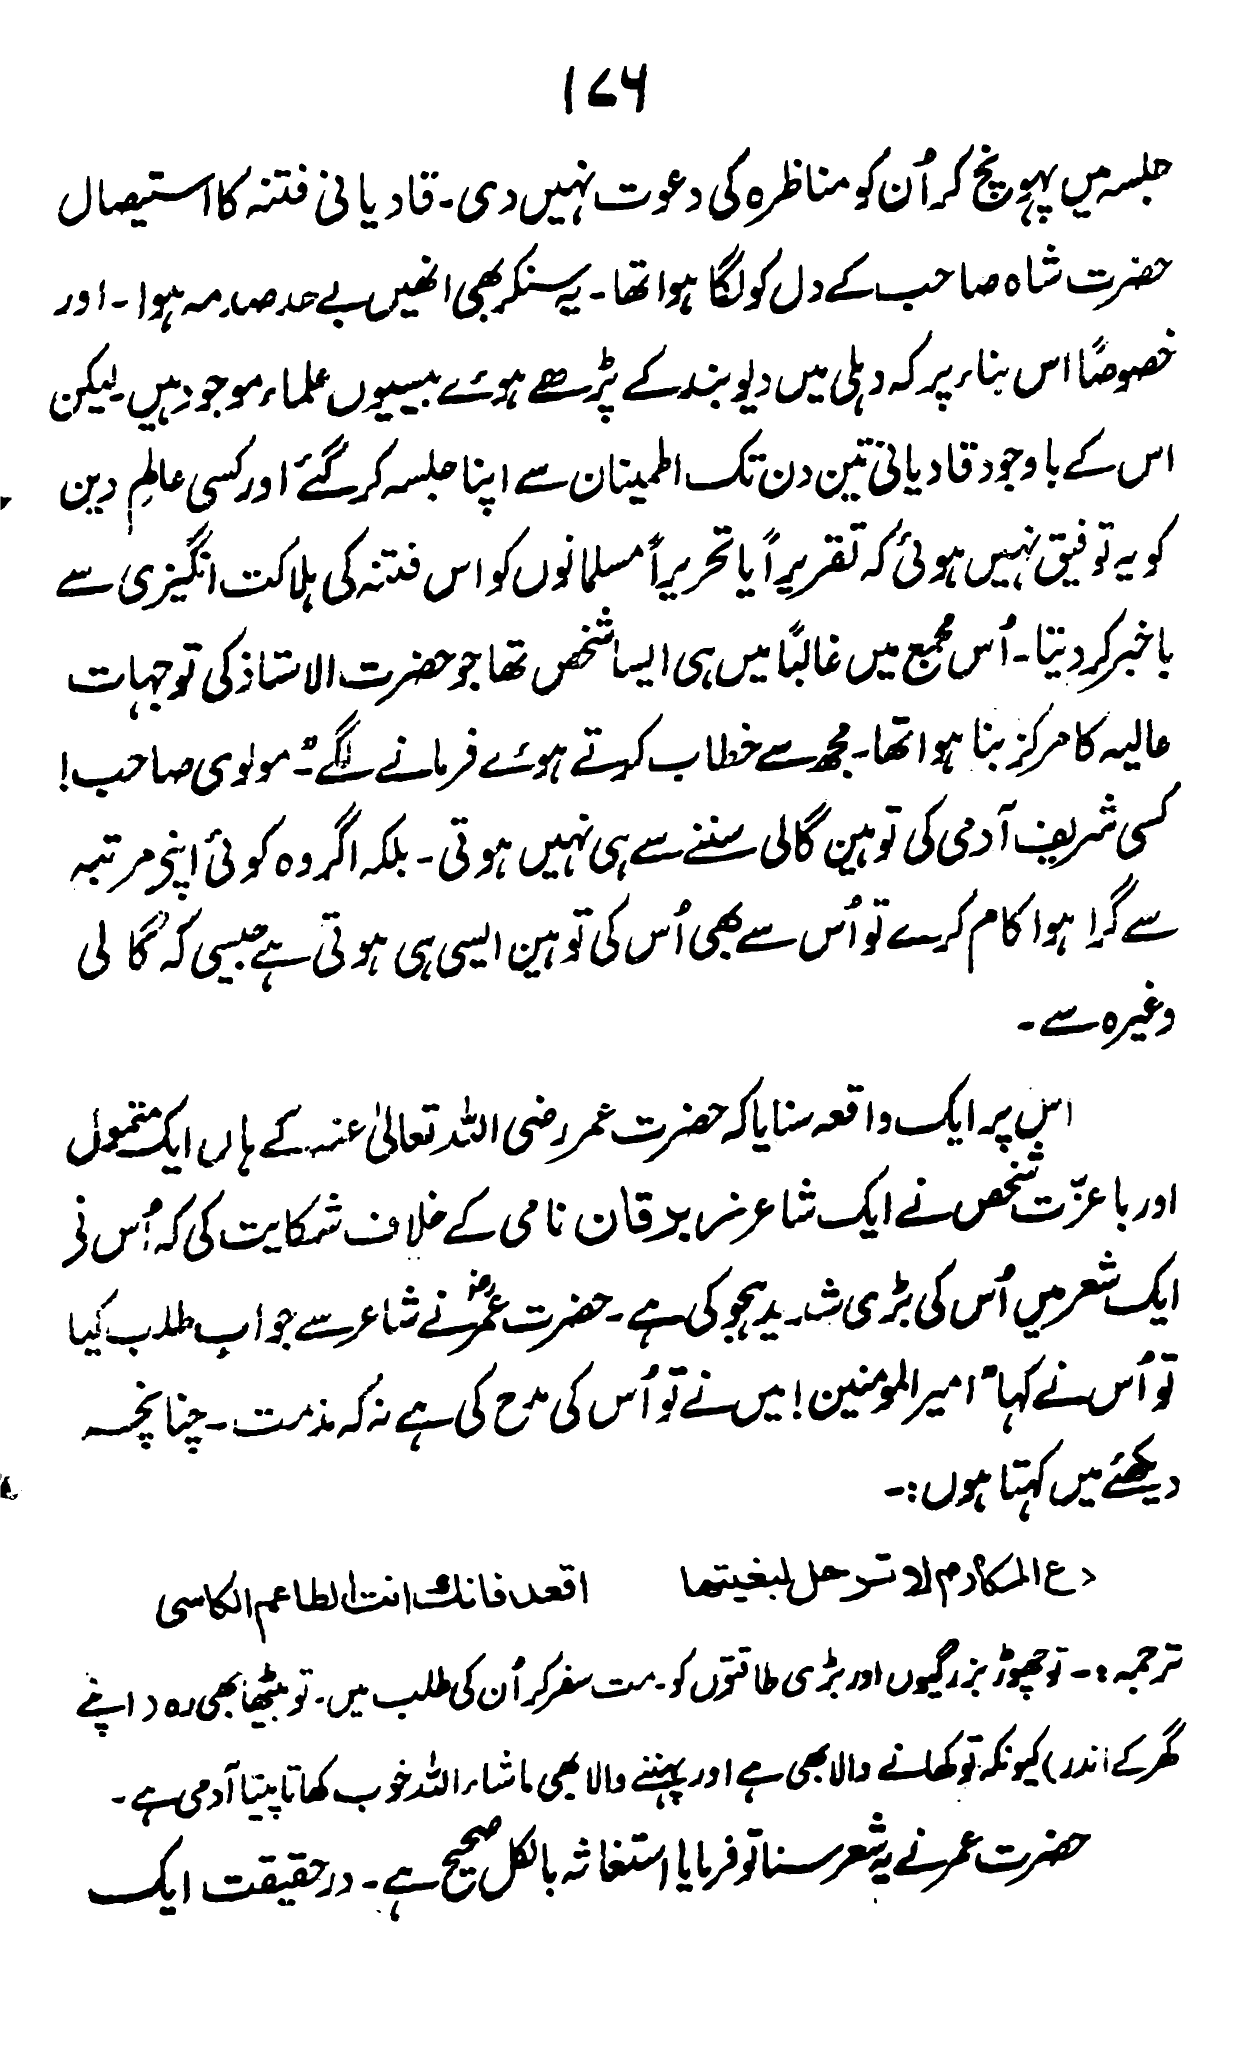 ۱۷۶
جلسہ میں پہونچ کر اُن کو مناظرہ کی دعوت نہیں دی۔ قادیانی فتنہ کا استیصال
حضرت شاہ صاحب کے دل کو لگا ہوا تھا۔ یہ سنکر بھی انھیں بے حد صدمہ ہوا۔ اور
خصوصًا اس بناء پر کہ دہلی میں دیوبند کے پڑھے ہوئے بیسیوں علماء موجود ہیں۔ لیکن
اس کے باوجود قادیانی تین دن تک اطمینان سے اپنا جلسہ کر گئے اور کسی عالمِ دین
کو یہ توفیق نہیں ہوئی کہ تقریراً یا تحریراً مسلمانوں کو اس فتنہ کی ہلاکت انگیزی سے
باخبر کر دیتا۔ اُس مجمع میں غالبًا میں ہی ایسا شخص تھا جو حضرت الاستاذ کی توجہات
عالیہ کا مرکز بنا ہوا تھا۔ مجھ سے خطاب کرتے ہوئے فرمانے لگے۔" مولوی صاحب!
کسی شریف آدمی کی توہین گالی سننے سے ہی نہیں ہوتی۔ بلکہ اگر وہ کوئی اپنی مرتبہ
سے گرا ہوا کام کرے تو اُس سے بھی اُس کی توہین ایسی ہی ہوتی ہے جیسی کہ گالی
وغیرہ سے۔
اس پر ایک واقعہ سنایا کہ حضرت عمر رضی اللہ تعالیٰ عنہ کے ہاں ایک متمول
اور باعزّت شخص نے ایک شاعر زبرقان نامی کے خلاف شکایت کی کہ اُس نے
ایک شعر میں اُس کی بڑی شدید ہجو کی ہے۔ حضرت عمرؓ نے شاعر سے جواب طلب کیا
تو اُس نے کہا" امیر المومنین! میں نے تو اُس کی مدح کی ہے نہ کہ مذمت۔ چنانچہ
دیکھئے میں کہتا ہوں:۔
دع المکارم لا ترحل لبغیتھا اقعد فانک انت الطاعم الکاسی
ترجمہ:۔ تو چھوڑ بزرگیوں اور بڑی طاقتوں کو۔ مت سفر کر اُن کی طلب میں۔ تو بیٹھا بھی رہ (اپنے
گھر کے اندر) کیونکہ تو کھانے والا بھی ہے اور پہننے والا بھی ماشاء اللہ خوب کھاتا پیتا آدمی ہے۔
حضرت عمر نے یہ شعر سنا تو فرمایا استغاثہ بالکل صحیح ہے۔ درحقیقت ایک